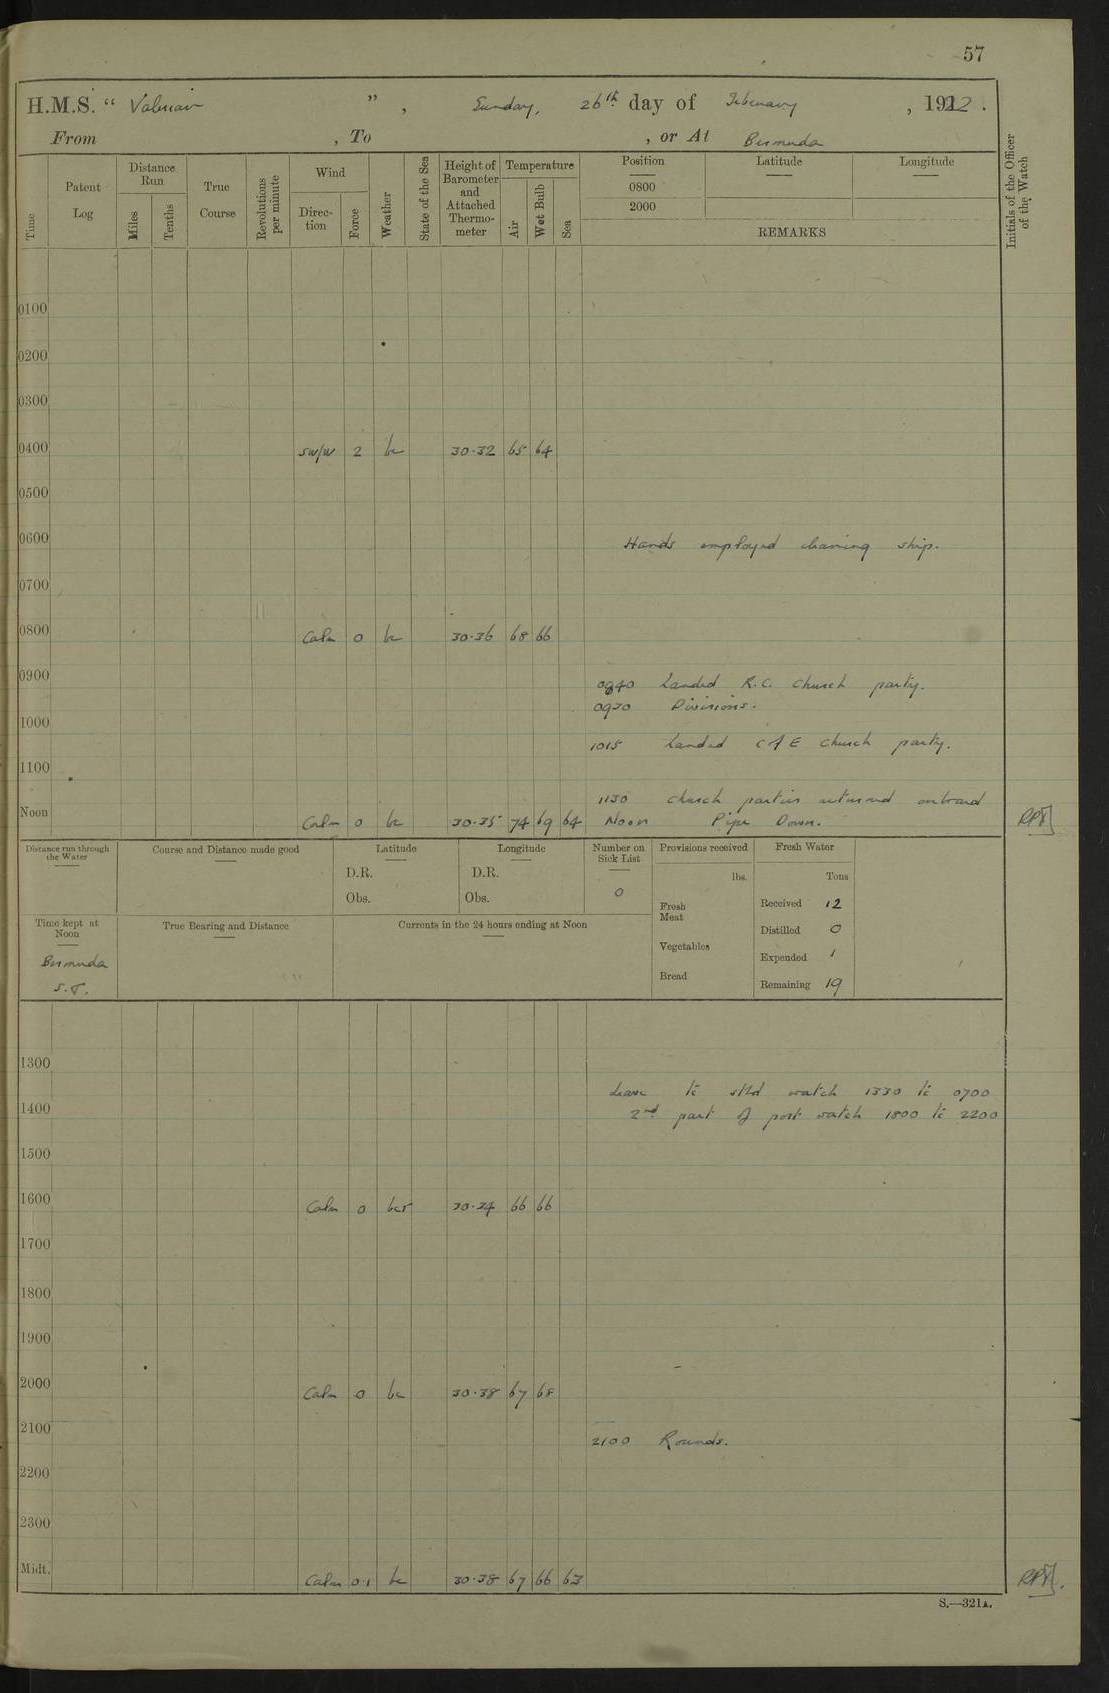 57
H.M.S. " Valerian ", Sunday, 26th day of February, 1922.
From , To , or At Bermuda
Time
Patent Log
Distance Run
Miles
Tenths
True Course
Revolutions per minute
Wind
Direction
Force
Weather
State of the Sea
Height of Barometer and Attached Thermometer
Temperature
Air
Wet Bulb
Sea
Position
0800
2000
Latitude
Longitude
REMARKS
Initials of the Officer of the Watch
0100
0200
0300
0400 SW/W 2 bc 30.32 65 64
0500
0600 Hands employed cleaning ship.
0700
0800 Calm 0 bc 30.36 68 66
0900
0840 Landed R.C. Church party.
0930 Divisions.
1000
1015 Landed C of E Church party.
1100
1130 Church parties returned onboard
Noon Calm 0 bc 30.35 74 69 64 Noon Pipe Down.
Distance run through the Water
Course and Distance made good
Latitude
D.R.
Obs.
Longitude
D.R.
Obs.
Number on Sick List
0
Provisions received
lbs.
Fresh Meat
Vegetables
Bread
Fresh Water
Tons
Received 12
Distilled 0
Expended 1
Remaining 19
Time kept at Noon
Bermuda S.T.
True Bearing and Distance
Currents in the 24 hours ending at Noon
1300
Leave to stbd watch 1330 to 0700
1400 2nd part of port watch 1800 to 2200
1500
1600 Calm 0 30.34 66 66
1700
1800
1900
2000 Calm 0 bc 30.38 67 68
2100
2100 Rounds.
2200
2300
Midt. Calm 0.1 bc 30.38 67 66 63
S.—321A.